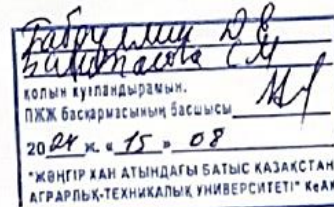 С М
қолын куәландырамын.
ПЖЖ басқармасының басшысы
2024 ж. « 15 » 08
"ЖӘҢГІР ХАН АТЫНДАҒЫ БАТЫС ҚАЗАҚСТАН
АГРАРЛЫҚ-ТЕХНИКАЛЫҚ УНИВЕРСИТЕТІ" КеАҚ